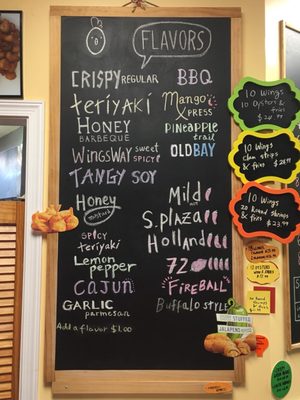 FLAVORS
CRISPY REGULAR
teriyaki
HONEY
BARBEQUE
WINGSWAY sweet
SPICY
TANGY SOY
HONEY
mustard
SPICY
teriyaki
Lemon
pepper
CAJUN
GARLIC
parmesan
Add a flavor $1.00
BBQ
Mango
XPRESS
PINEAPPLE
trail
OLD BAY
Mild
S. PLAZA
Holland
72
FIREBALL
Buffalo STYLE
10 WINGS
10 Oysters
& fries
$24.99
10 WINGS
Clam strips
& fries
10 WINGS
20 Round Shrimps
& fries
$23.99
STUFFED
JALAPENO